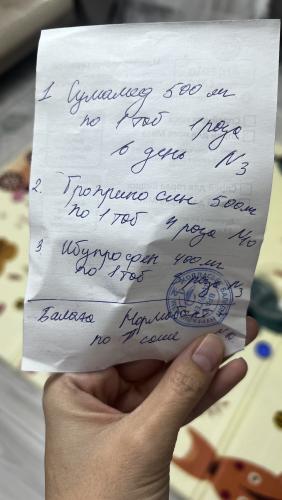 1 Сумамед 500 мг
по 1 таб 1 раза
в день N3
2. Гроприносин 500 мг
по 1 таб 4 раза N40
3 Ибупрофен 400 мг
по 1 таб раза N3
Балага
по 1 саше